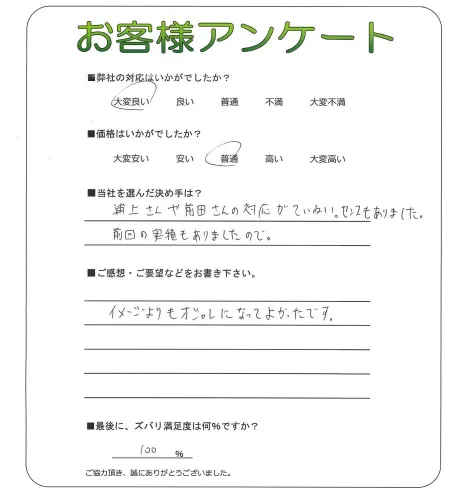 お客様アンケート
■弊社の対応はいかがでしたか？
大変良い 良い 普通 不満 大変不満
■価格はいかがでしたか？
大変安い 安い 普通 高い 大変高い
■当社を選んだ決め手は？
浦上さんや前田さんの対応がていねい。センスもありました。
前回の実績もありましたので。
■ご感想・ご要望などをお書き下さい。
イメージよりもオシャレになってよかったです。
■最後に、ズバリ満足度は何％ですか？
100 ％
ご協力頂き、誠にありがとうございました。